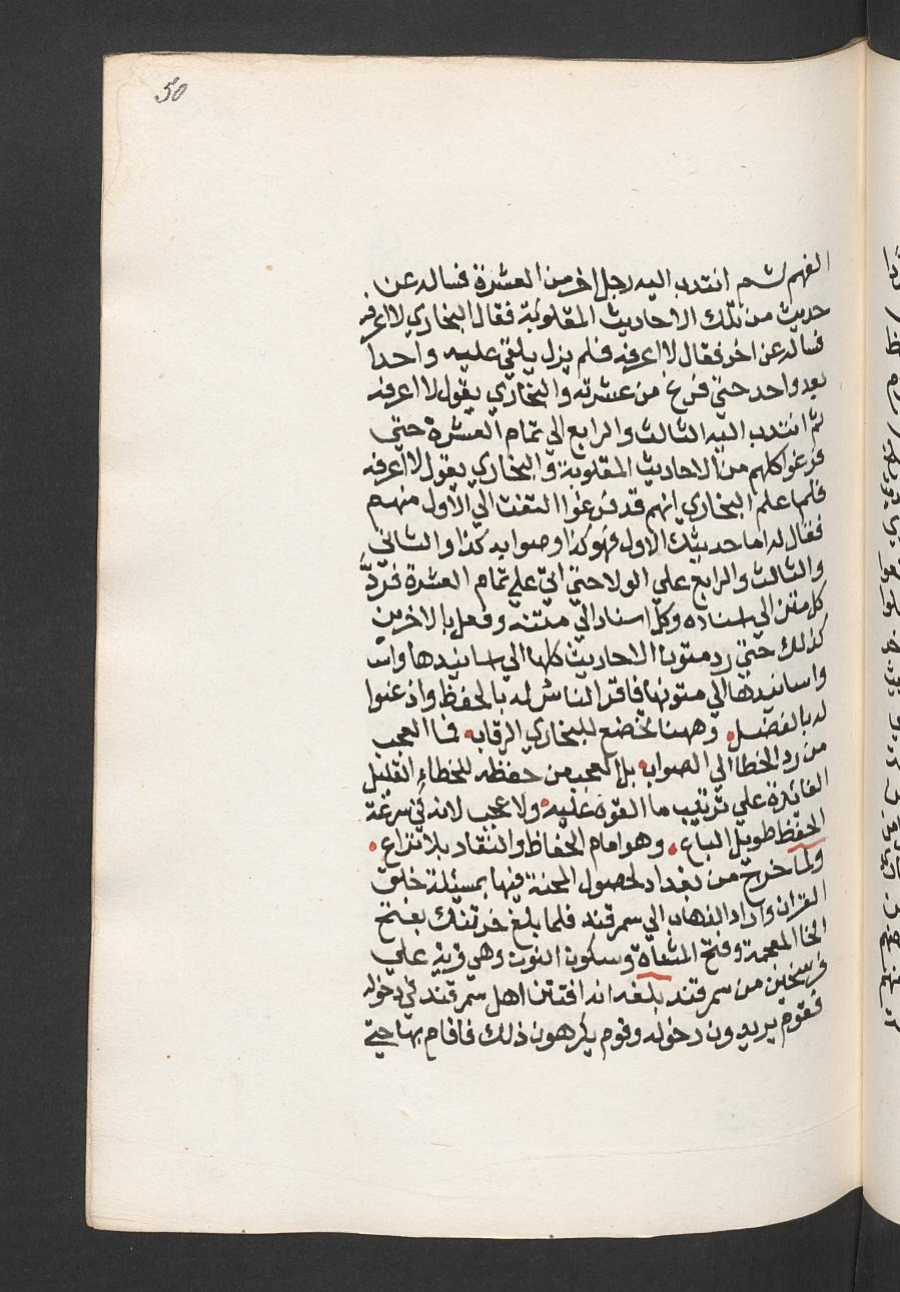 50
الفهم ثم انتدب اليه رجل اخر من العشرة فساله عن
حديث من تلك الاحاديث المقلوبة فقال البخاري لا اعرفه
فساله عن اخر فقال لا اعرفه فلم يزل يلقي عليه واحدا
بعد واحد حتي فرغ من عشرته والبخاري يقول لا اعرفه
ثم انتدب اليه الثالث والرابع الي تمام العشرة حتي
فرغوا كلهم من الاحاديث المقلوبة والبخاري يقول لا اعرفه
فلما علم البخاري انهم قد فرغوا التفت الي الاول منهم
فقال له اما حديثك الاول فهو كذا وصوابه كذا والثاني
والثالث والرابع علي الولا حتي اتي علي تمام العشرة فردّ
كل متن الي اسناده وكل اسناد الي متنه وفعل بالاخرين
كذلك حتي رد متون الاحاديث كلها الي اسانيدها واسا
واسانيدها الي متونها فاقر الناس له بالحفظ واذعنوا
له بالفضل وههنا تخضع للبخاري الرقاب فما العجب
من رد الخطا الي الصواب بل العجب من حفظه للخطاء القليل
الفائدة علي ترتيب ما القوه عليه ولا عجب لانه في سرعة
الحفظ طويل الباع وهو امام الحفاظ والنقاد بلا نزاع
ولما خرج من بغداد لحصول المحنة فيها بمسئلة خلق
القران واراد الذهاب الي سمرقند فلما بلغ خرتنك بفتح
الخا المعجمة وفتح المثناة وسكون النون وهي قرية علي
فرسخين من سمرقند بلغه انه افتتن اهل سمرقند في دخوله
فقوم يريدون دخوله وقوم يكرهون ذلك فاقام بها حتي